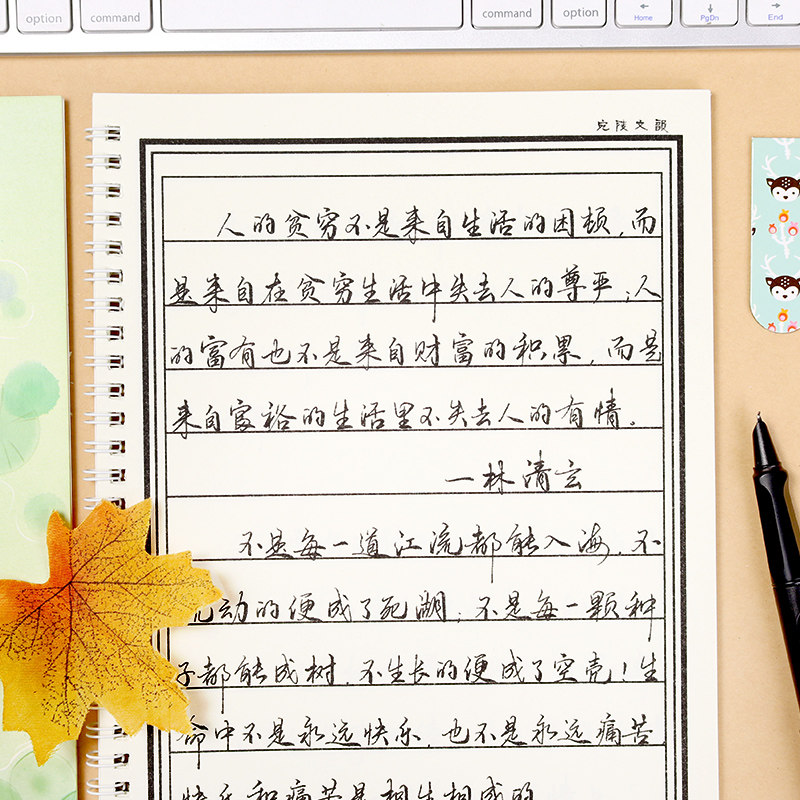 option
command
command
option
Home
PgDn
End
人的贫穷不是来自生活的困顿，而
是来自在贫穷生活中失去人的尊严；人
的富有也不是来自财富的积累，而是
来自富裕的生活里不失去人的有情。
一林清玄
不是每一道江流都能入海，不
流动的便成了死湖；不是每一颗种
子都能成树，不生长的便成了空壳！生
命中不是永远快乐，也不是永远痛苦
快乐和痛苦是相生相成的